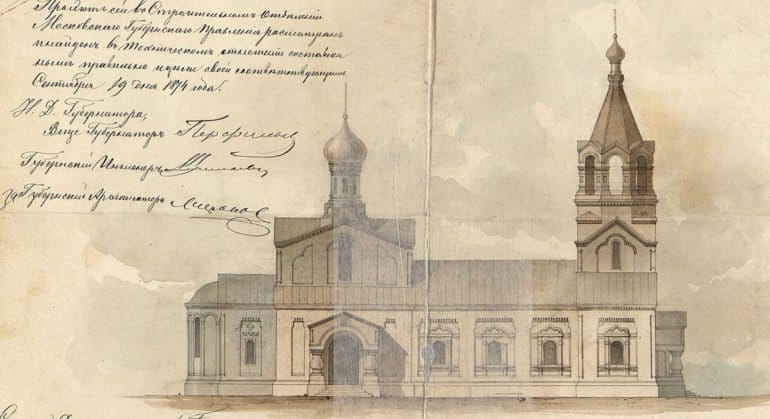 Проэктъ сей въ Строительномъ Отделенiи
Московскаго Губернскаго Правленiя разсмотренъ
и найденъ въ техническомъ отношенiи составлен
нымъ правильно и цели своей соответствующимъ
Сентября 19 дня 1874 года.
И. Д. Губернатора,
Вице Губернаторъ
Губернскiй Инженеръ
за Губернскiй Архитектора